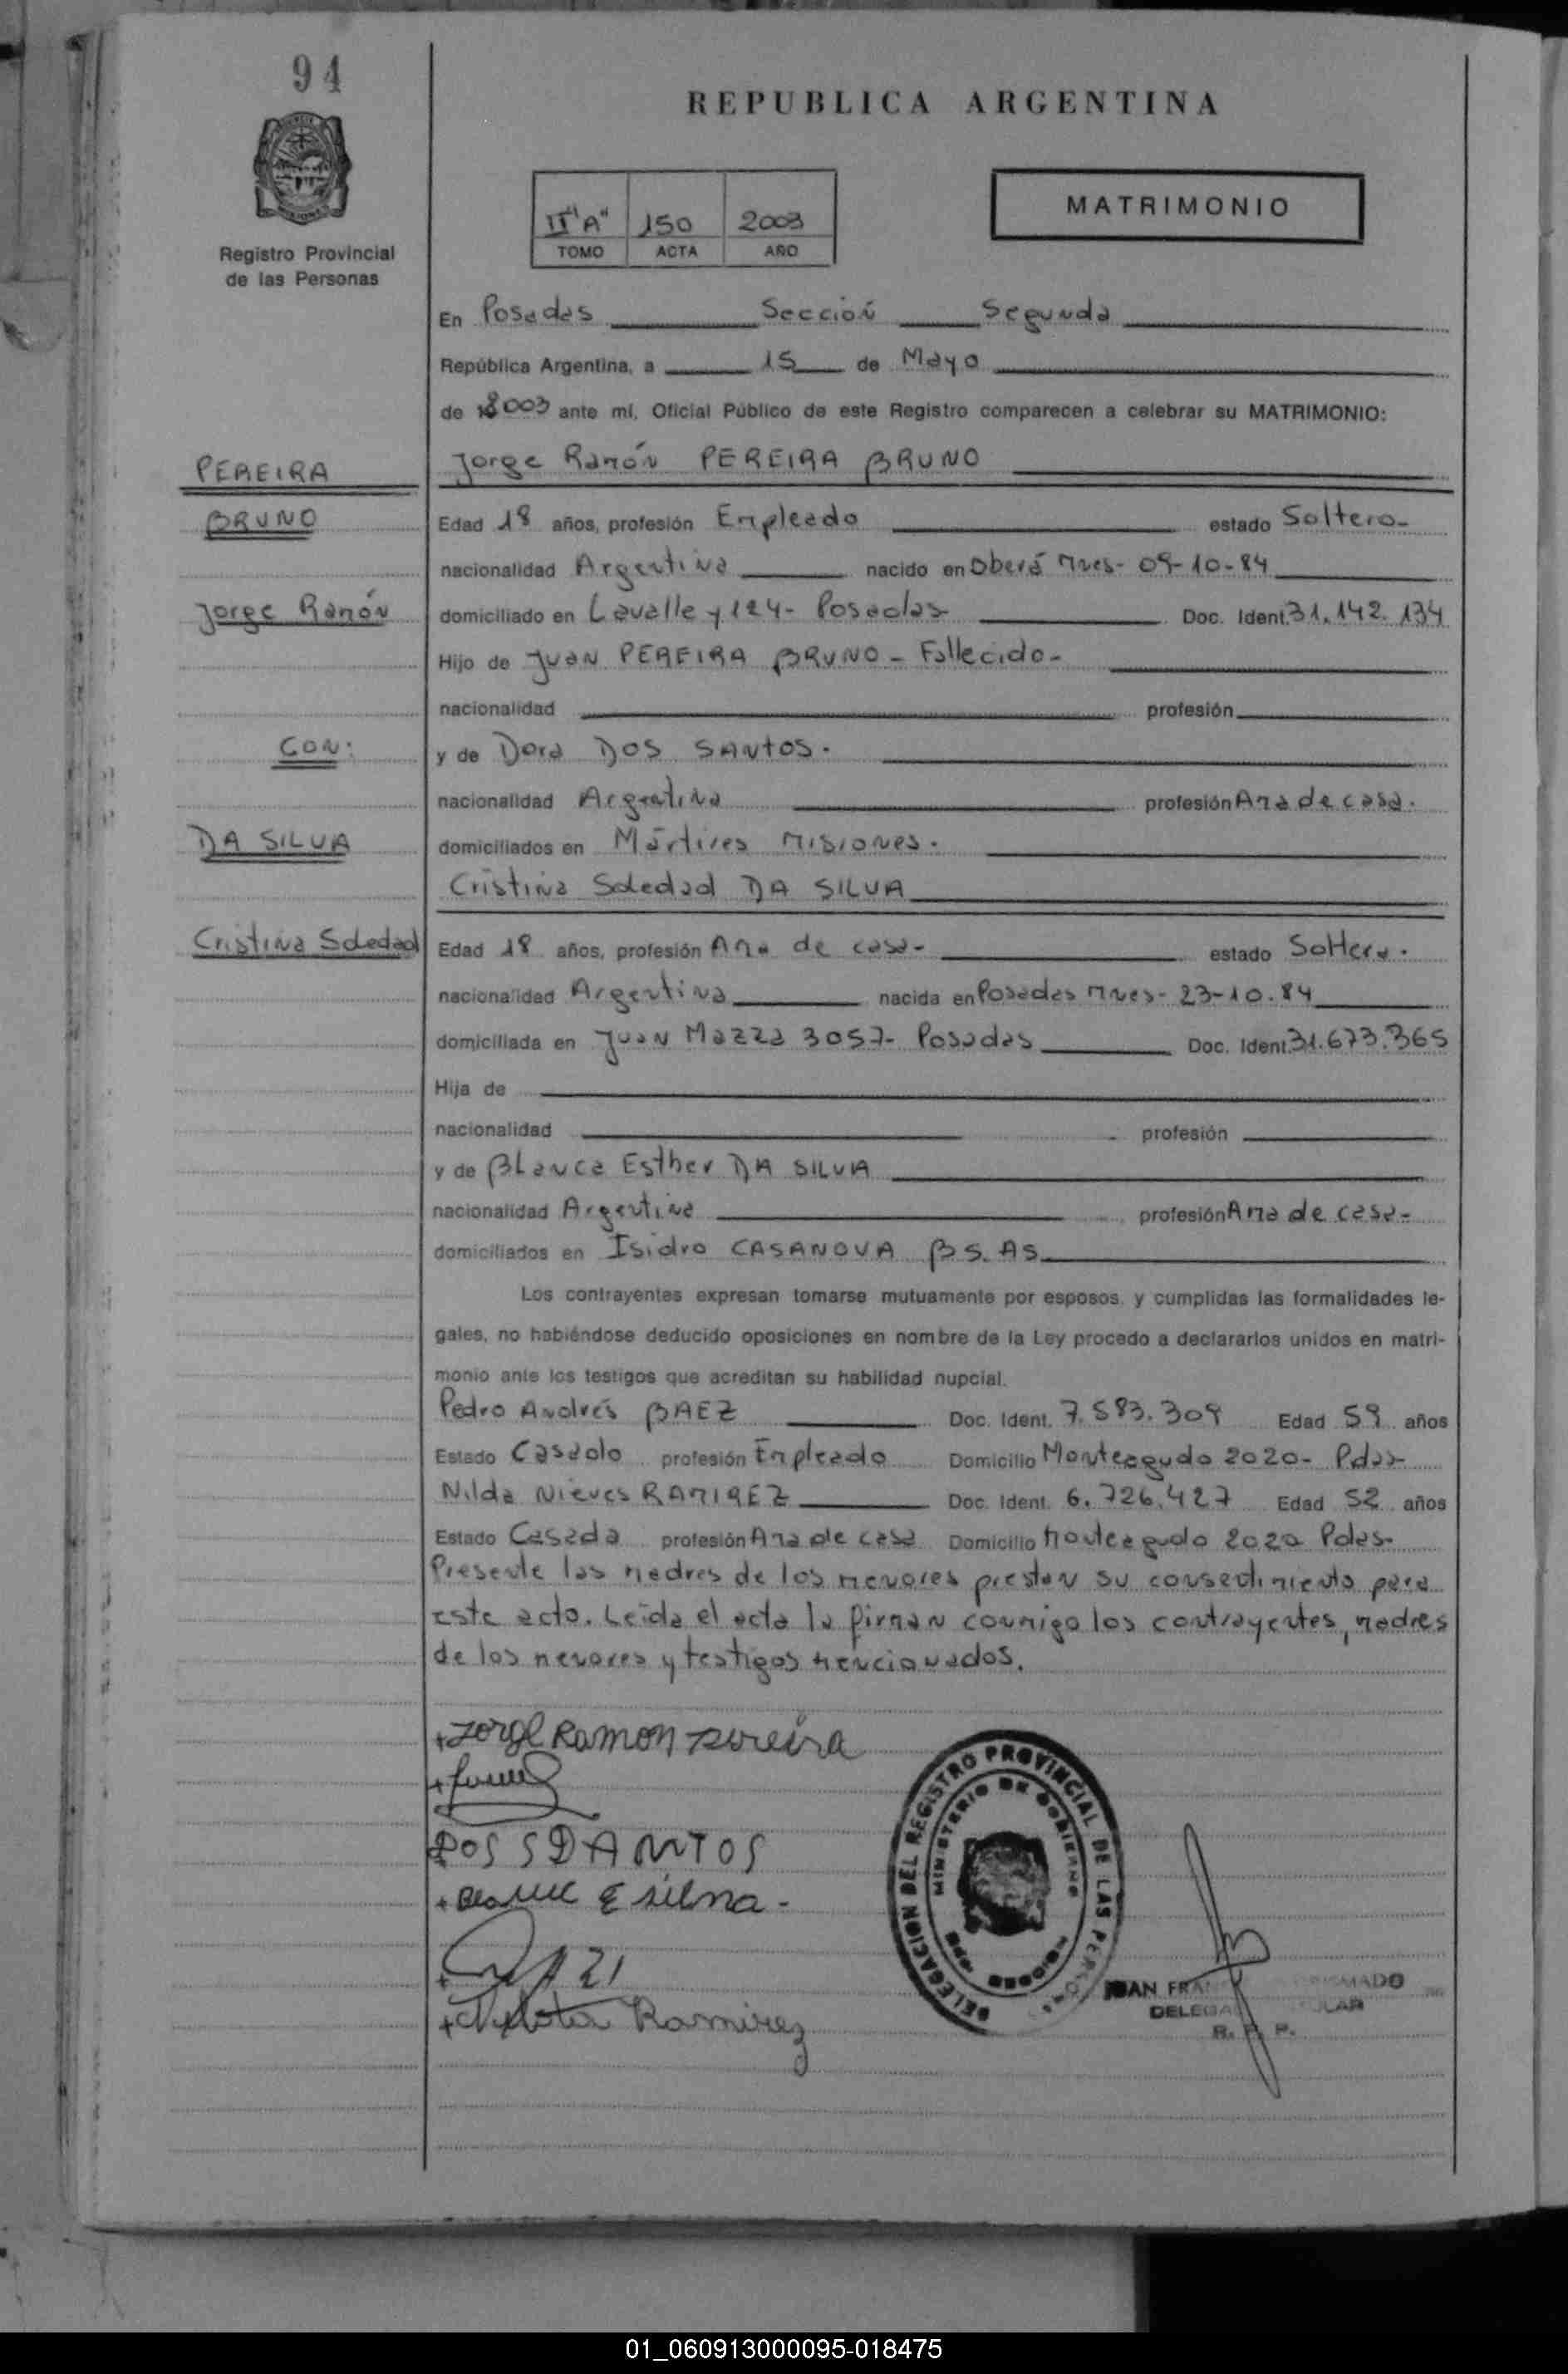 94
REPUBLICA ARGENTINA
Registro Provincial
de las Personas
II "A" 150 2003
TOMO ACTA AÑO
MATRIMONIO
En Posadas Sección Segunda
República Argentina, a 15 de Mayo
de 2003 ante mí, Oficial Público de este Registro comparecen a celebrar su MATRIMONIO:
PEREIRA
BRUNO
Jorge Ramón
CON:
DA SILVA
Cristina Soledad
Jorge Ramón PEREIRA BRUNO
Edad 18 años, profesión Empleado estado Soltero-
nacionalidad Argentina nacido en Oberá Mnes- 09-10-84
domiciliado en Lavalle y 124- Posadas Doc. Ident. 31.142.134
Hijo de Juan PEREIRA BRUNO - Fallecido-
nacionalidad profesión
y de Dora DOS SANTOS.
nacionalidad Argentina profesión Ama de casa.
domiciliados en Mártires Misiones.
Cristina Soledad DA SILVA
Edad 18 años, profesión Ama de casa- estado Soltera.
nacionalidad Argentina nacida en Posadas Mnes- 23-10.84
domiciliada en Juan Mazza 3057- Posadas Doc. Ident. 31.673.365
Hija de
nacionalidad profesión
y de Blanca Esther DA SILVA
nacionalidad Argentina profesión Ama de casa-
domiciliados en Isidro CASANOVA BS. AS
Los contrayentes expresan tomarse mutuamente por esposos, y cumplidas las formalidades le-
gales, no habiéndose deducido oposiciones en nombre de la Ley procedo a declararlos unidos en matri-
monio ante los testigos que acreditan su habilidad nupcial.
Pedro Andrés BAEZ Doc. Ident. 7.583.309 Edad 59 años
Estado Casado profesión Empleado Domicilio Monteagudo 2020- Pdas-
Nilda Nieves RAMIREZ Doc. Ident. 6.726.427 Edad 52 años
Estado Casada profesión Ama de casa Domicilio Monteagudo 2020 Pdas-
Presente las madres de los menores prestan su consentimiento para
este acto. Leída el acta la firman conmigo los contrayentes, madres
de los menores y testigos mencionados.
+Jorge Ramon Pereira
DOS SDANTOS
+ E silva -
Ramirez
DELEGACION DEL REGISTRO PROVINCIAL DE LAS
MINISTERIO DE GOBIERNO
JUAN FRAN
R. P. P.
01_060913000095-018475